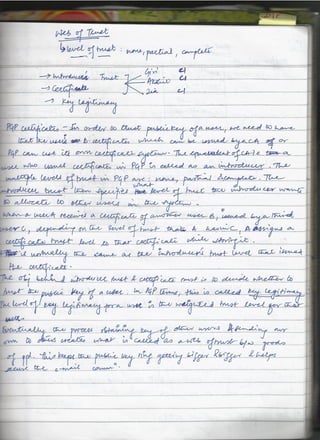 Web of Trust
level of trust : none, partial, complete
→ Introducer's Trust
→ Certificate
→ Key legitimacy
PGP Certificates - In order to trust public key of a user, we need to have
that user's certificate which can be issued by a CA or
PGP can use its own certificate system. The equivalent of CA is a
user who issues certificates in PGP is called as an introducer. The
multiple levels of trust in PGP are : none, partial & complete. The
introducer trust then specifies what level of trust the introducer wants
to allocate to other users in the system.
When a user A receives a certificate of another user B, issued by a third
user C, depending on the level of trust that A have in C, A assigns a
certificate trust level to that certificate while storing it.
It is normally the same as the introducer's trust level that issued
the certificate.
The obj behind introducer trust & certificate trust is to decide whether to
trust the public key of a user. In PGP terms, this is called key legitimacy
The level of key legitimacy for a user is the weighted trust level for that
user.
Eventually the process obtaining key of other users & sending our
own to others creates what is called as a web of trust b/w
of ppl. This keeps the public key ring getting bigger & bigger & helps
secure the e-mail comm".